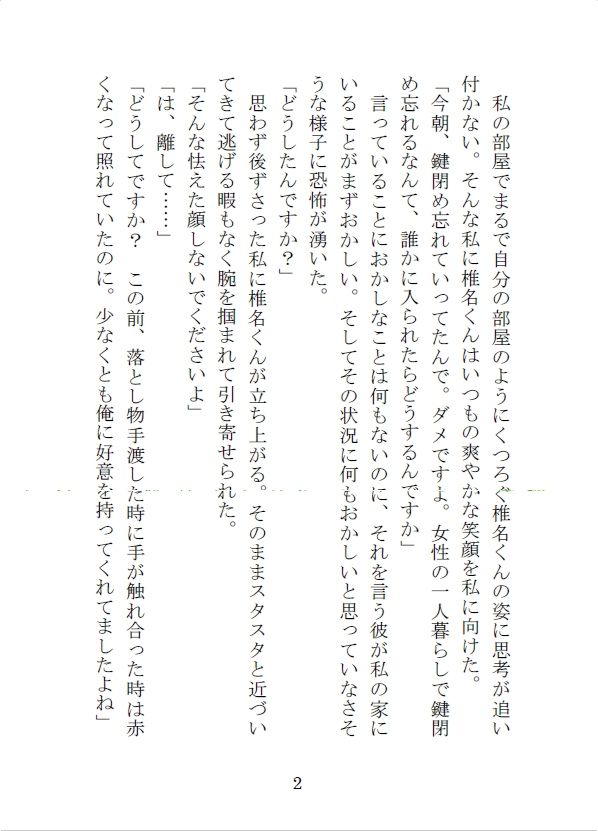 私の部屋でまるで自分の部屋のようにくつろぐ椎名くんの姿に思考が追い
付かない。そんな私に椎名くんはいつもの爽やかな笑顔を私に向けた。
「今朝、鍵閉め忘れていってたんで。ダメですよ。女性の一人暮らしで鍵閉
め忘れるなんて、誰かに入られたらどうするんですか」
　言っていることにおかしなことは何もないのに、それを言う彼が私の家に
いることがまずおかしい。そしてその状況に何もおかしいと思っていなさそ
うな様子に恐怖が湧いた。
「どうしたんですか？」
　思わず後ずさった私に椎名くんが立ち上がる。そのままスタスタと近づい
てきて逃げる暇もなく腕を掴まれて引き寄せられた。
「そんな怯えた顔しないでくださいよ」
「は、離して……」
「どうしてですか？　この前、落とし物手渡した時に手が触れ合った時は赤
くなって照れていたのに。少なくとも俺に好意を持ってくれてましたよね」
2